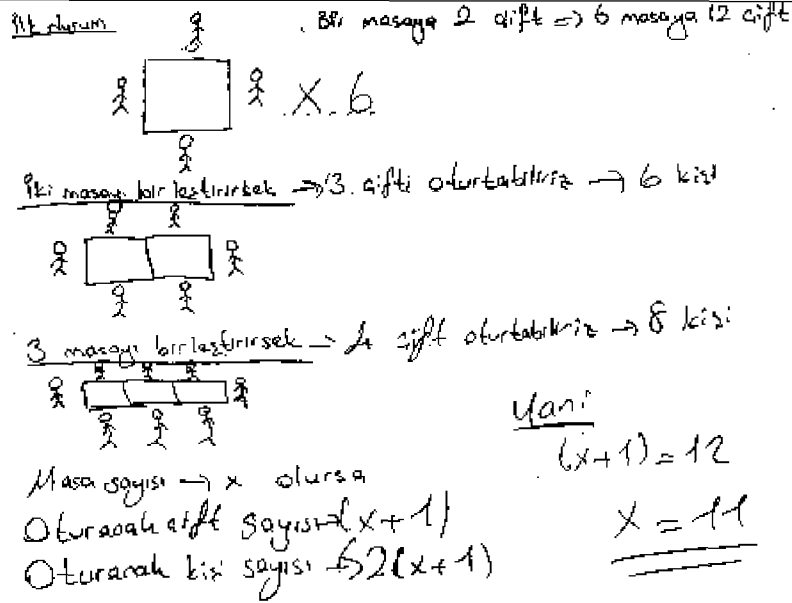 İlk durum
. Bir masaya 2 çift => 6 masaya 12 çift
x 6
İki masayı birleştirirsek → 3 çifti oturtabiliriz → 6 kişi
3 masayı birleştirirsek → 4 çift oturtabiliriz → 8 kişi
Yani
(x+1)=12
x = 11
Masa sayısı → x olursa
Oturacak çift sayısı → (x+1)
Oturacak kişi sayısı → 2(x+1)